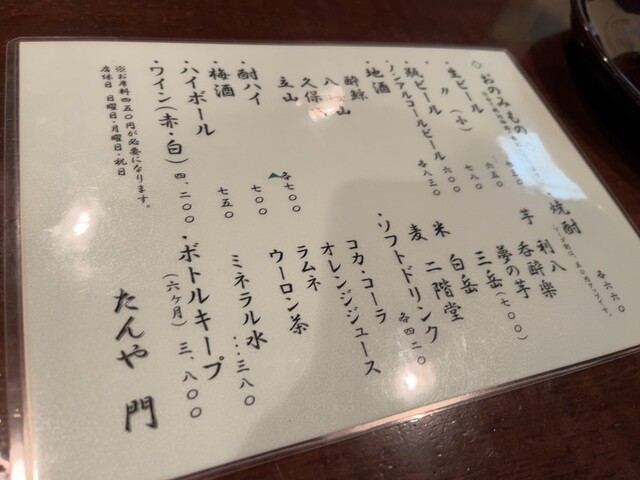 ◇おのみもの
・生ビール
〃（小）
七八〇
六五〇
・瓶ビール
六〇〇
・ノンアルコールビール
各八三〇
・地酒
酔鯨
八
山
久保
立山
各七〇〇
・酎ハイ
七〇〇
・梅酒
七五〇
・ハイボール
・ワイン(赤・白)
四、二〇〇
※お席料四五〇円が必要になります。
店休日 日曜日・月曜日・祝日
・焼酎
各六六〇
芋 利八
呑酔楽
夢の芋(七〇〇)
三岳
米 白岳
麦 二階堂
・ソフトドリンク
各四二〇
コカ・コーラ
オレンジジュース
ラムネ
ウーロン茶
ミネラル水…三八〇
・ボトルキープ
(六ヶ月) 三、八〇〇
たんや 門